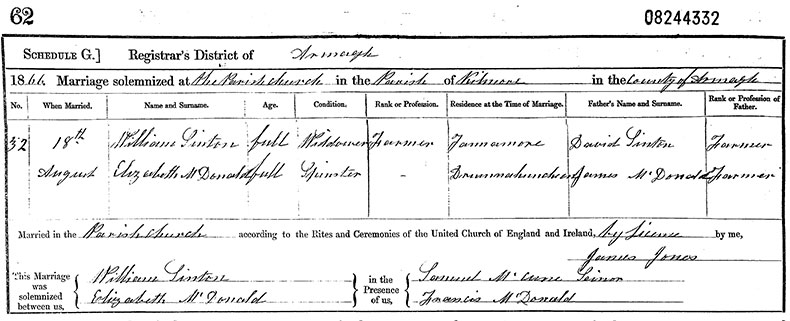 62 08244332
SCHEDULE G.] Registrar's District of Armagh
1866. Marriage solemnized at the Parish church in the Parish of Kilmore in the County of Armagh
No. When Married. Name and Surname. Age. Condition. Rank or Profession. Residence at the Time of Marriage. Father's Name and Surname. Rank or Profession of Father.
52 18th William Sinton full Widdower Farmer Tamnamore David Sinton Farmer
August Elizabeth McDonald full Spinster - James McDonald Farmer
Married in the Parish church according to the Rites and Ceremonies of the United Church of England and Ireland, by licence by me,
James Jones
This Marriage was solemnized between us, William Sinton in the Presence of us, Samuel McCune Seinor
Elizabeth McDonald Francis McDonald